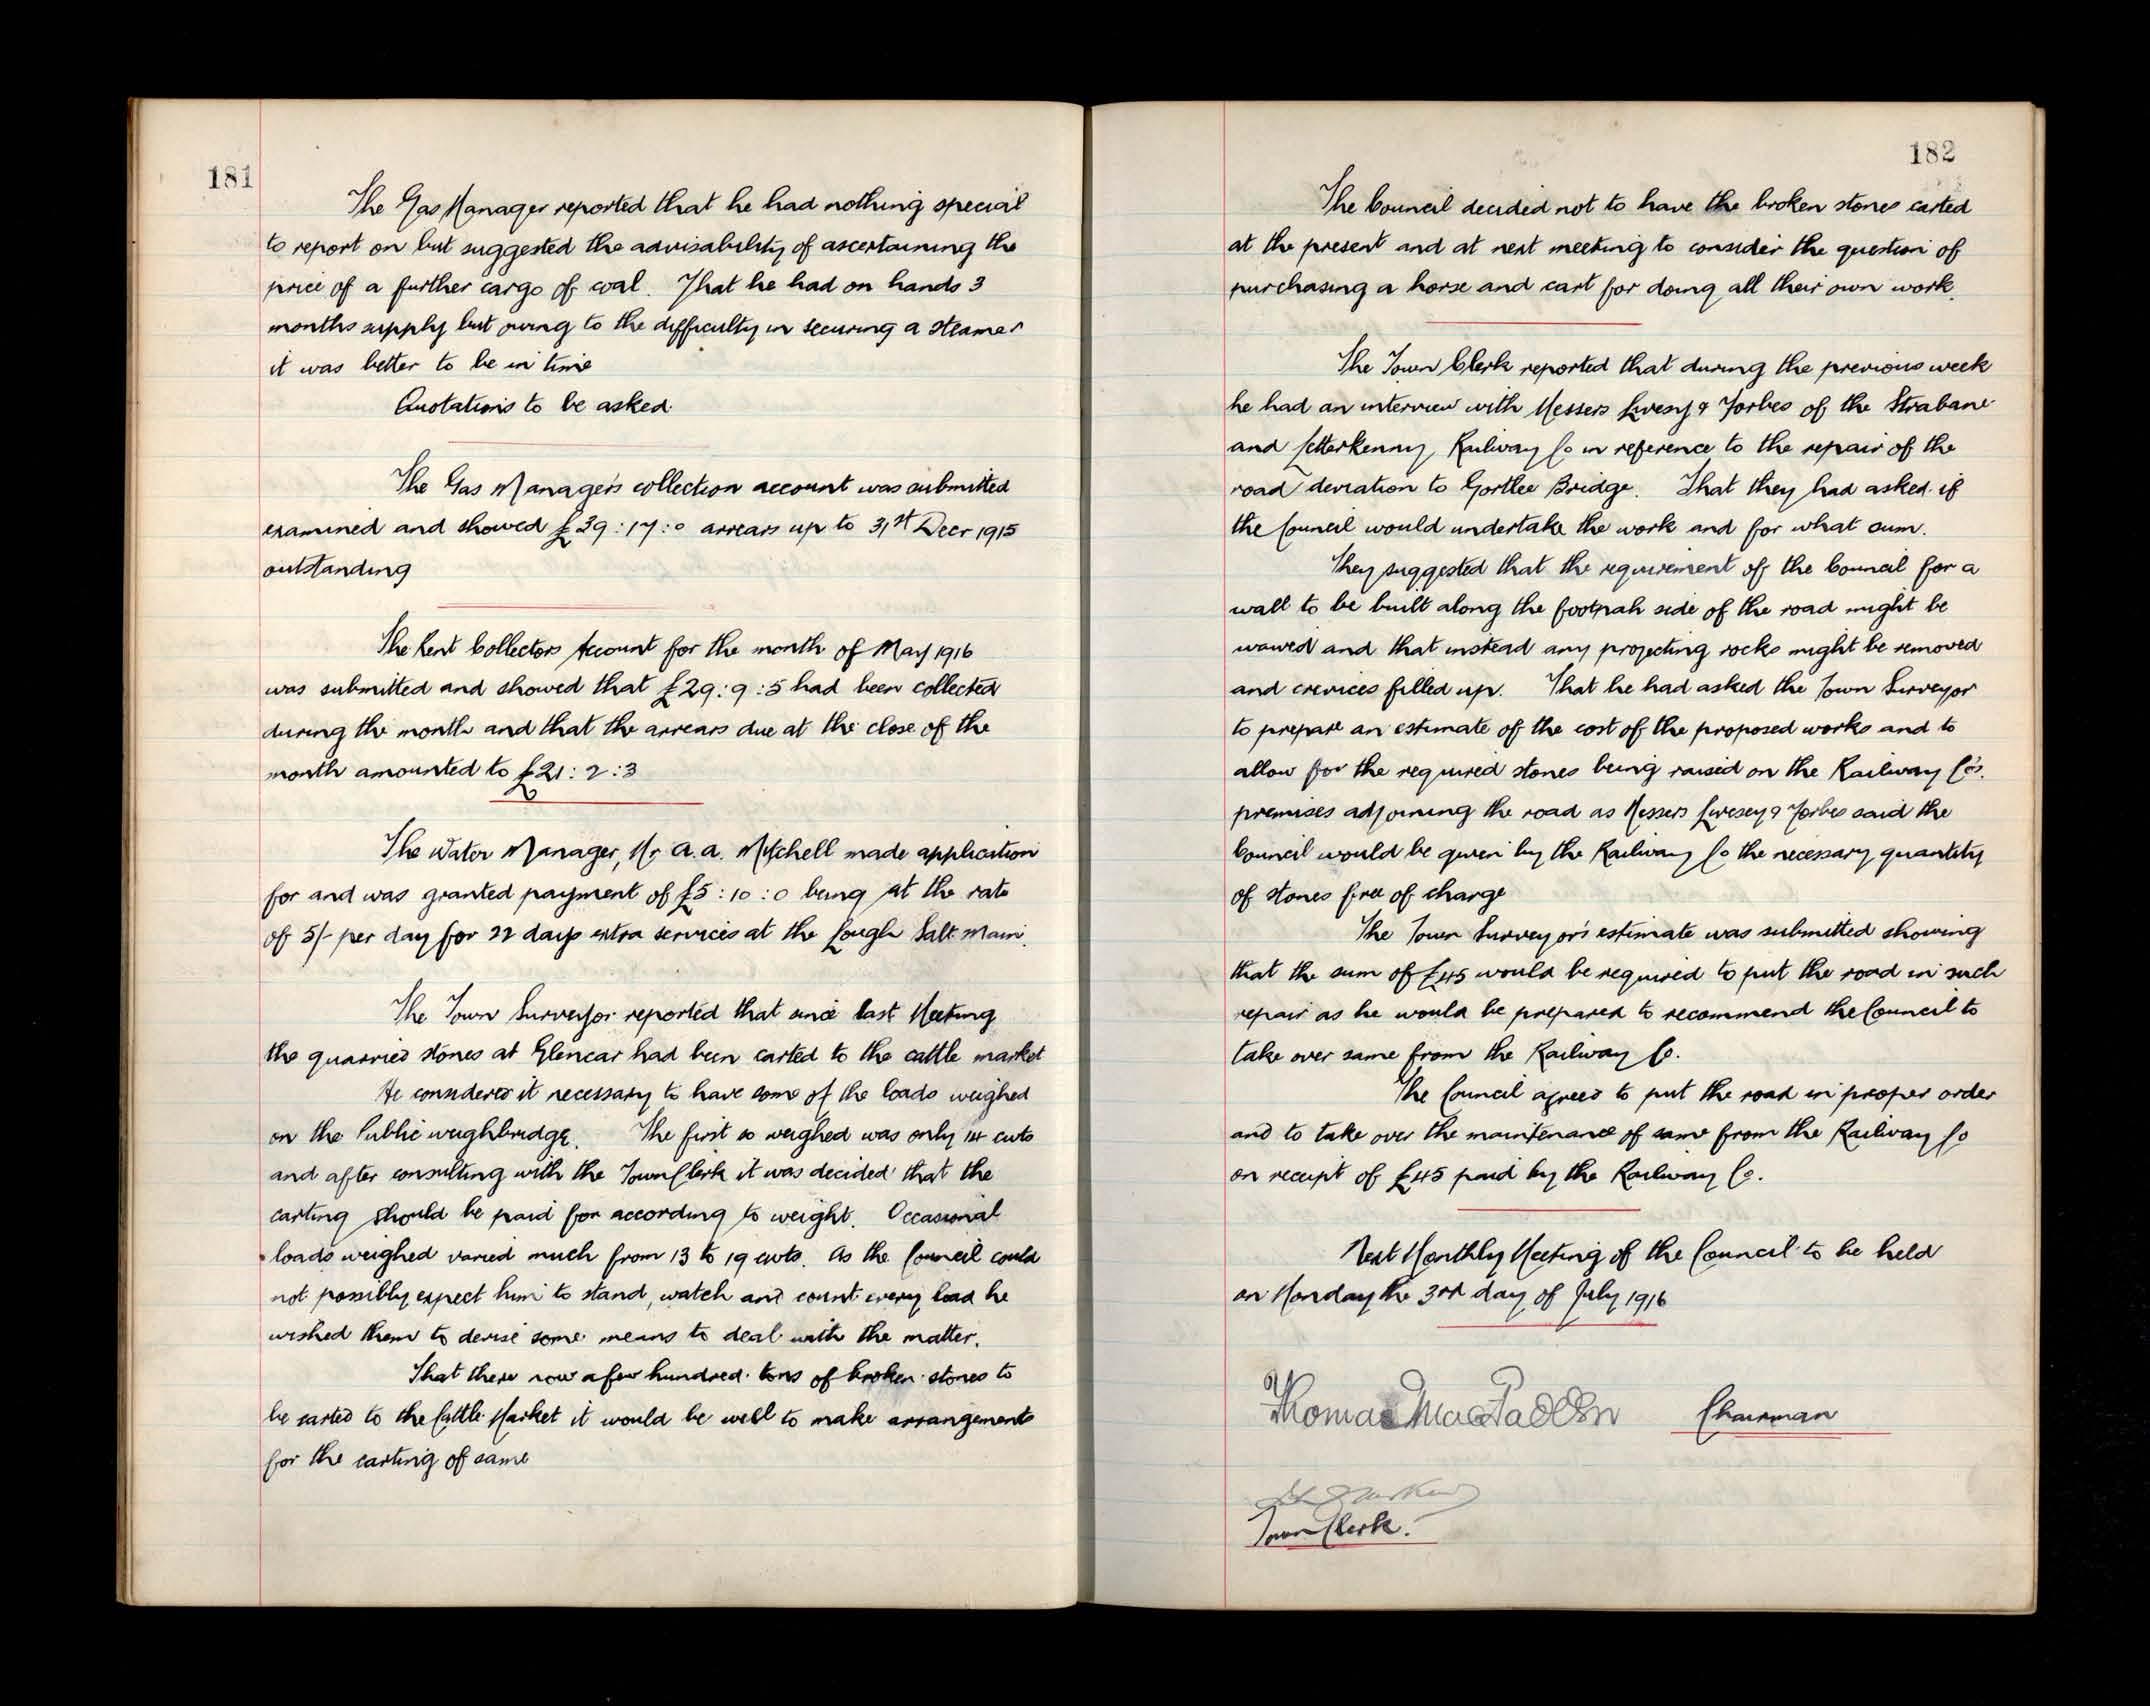 181
The Gas Manager reported that he had nothing special
to report on but suggested the advisability of ascertaining the
price of a further cargo of coal. That he had on hands 3
months supply but owing to the difficulty in securing a steamer
it was better to be in time
Quotations to be asked.
The Gas Manager's collection account was submitted
examined and showed £39:17:0 arrears up to 31st Decr 1915
outstanding
The Rent Collectors Account for the month of May 1916
was submitted and showed that £29:9:5 had been collected
during the month and that the arrears due at the close of the
month amounted to £21:2:3
The Water Manager, Mr A.A. Mitchell made application
for and was granted payment of £5:10:0 being at the rate
of 5/- per day for 22 days extra services at the Lough Salt Main.
The Town Surveyor reported that since last Meeting
the quarried stones at Glencar had been carted to the cattle market
He considered it necessary to have some of the loads weighed
on the Public weighbridge. The first so weighed was only 14 cwts
and after consulting with the Town Clerk it was decided that the
carting should be paid for according to weight. Occasional
loads weighed varied much from 13 to 19 cwts. As the Council could
not possibly expect him to stand, watch and count every load he
wished them to devise some means to deal with the matter.
That there now a few hundred tons of broken stones to
be carted to the Cattle Market it would be well to make arrangements
for the carting of same
182
The Council decided not to have the broken stones carted
at the present and at next meeting to consider the question of
purchasing a horse and cart for doing all their own work.
The Town Clerk reported that during the previous week
he had an interview with Messers Livesey & Forbes of the Strabane
and Letterkenny Railway Co in reference to the repair of the
road deviation to Gortlee Bridge. That they had asked if
the Council would undertake the work and for what sum.
They suggested that the requirement of the Council for a
wall to be built along the footpah side of the road might be
waived and that instead any projecting rocks might be removed
and crevices filled up. That he had asked the Town Surveyor
to prepare an estimate of the cost of the proposed works and to
allow for the required stones being raised on the Railway Co's.
premises adjoining the road as Messers Livesey & Forbes said the
Council would be given by the Railway Co the necessary quantity
of stones free of charge
The Town Surveyor's estimate was submitted showing
that the sum of £45 would be required to put the road in such
repair as he would be prepared to recommend the Council to
take over same from the Railway Co.
The Council agreed to put the road in proper order
and to take over the maintenance of same from the Railway Co
on receipt of £45 paid by the Railway Co.
Next Monthly Meeting of the Council to be held
on Monday the 3rd day of July 1916
Thomas MacFadden Chairman
Town Clerk.